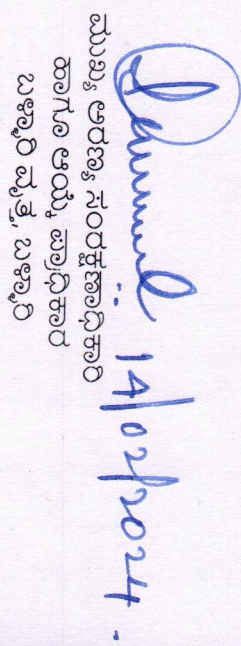 14/02/2024.
ಮುಖ್ಯ ಅರಣ್ಯ ಸಂರಕ್ಷಣಾಧಿಕಾರಿ
ಹಾಗೂ ಆಯ್ಕೆ ಪ್ರಾಧಿಕಾರ
ಬಳ್ಳಾರಿ ವೃತ್ತ, ಬಳ್ಳಾರಿ